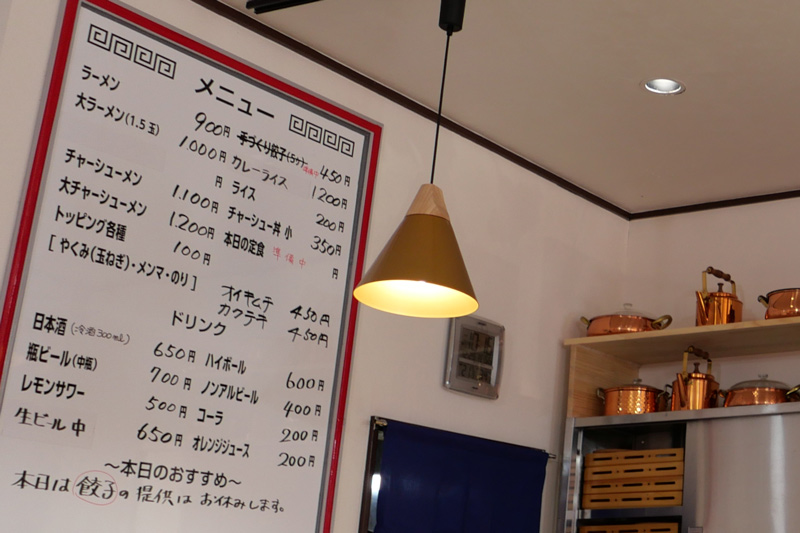 メニュー
ラーメン 900円
大ラーメン(1.5玉) 1000円
円
チャーシューメン 1.100円
大チャーシューメン 1.200円
トッピング各種 100円
[やくみ(玉ねぎ)・メンマ・のり]
手づくり餃子(5ケ) 450円
カレーライス 1200円
ライス 200円
チャーシュー丼 小 350円
本日の定食 準備中 円
オイキムチ 450円
カクテキ 450円
ドリンク
日本酒(冷酒300ml) 650円
瓶ビール(中瓶) 700円
レモンサワー 500円
生ビール 中 650円
ハイボール 600円
ノンアルビール 400円
コーラ 200円
オレンジジュース 200円
〜本日のおすすめ〜
本日は餃子の提供はお休みします。